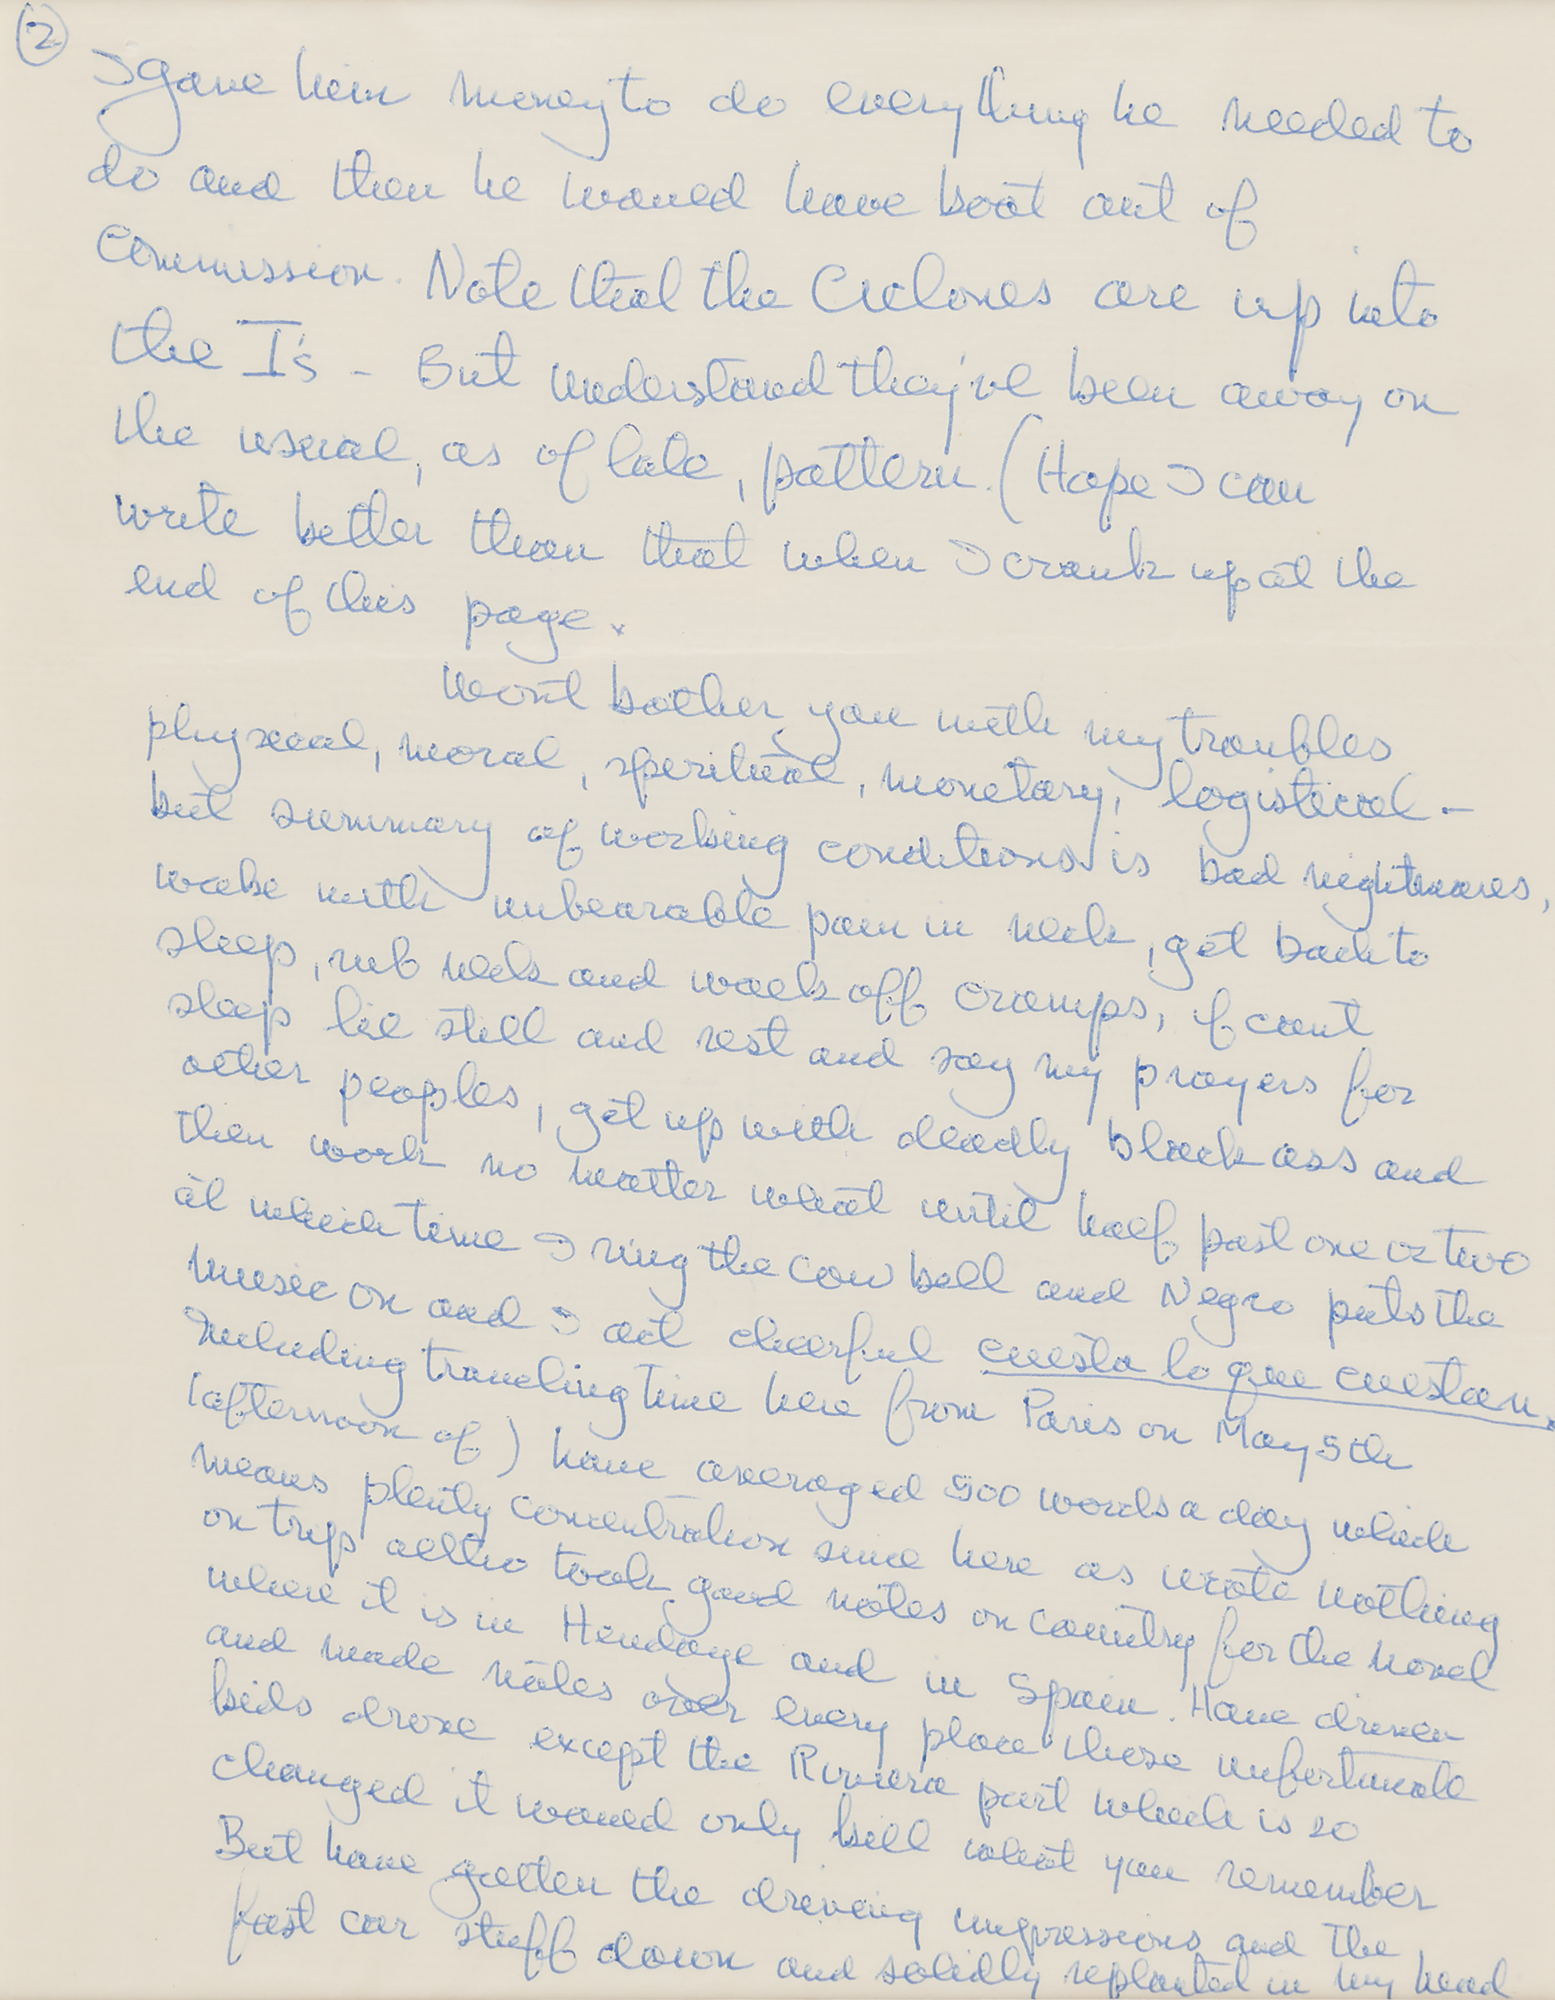 2
I gave him money to do everything he needed to
do and then he would have boat out of
commission. Note that the Ciclones are up into
the I's - But understand they've been away on
the usual, as of late, pattern. (Hope I can
write better than that when I crank up at the
end of this page.
Won't bother you with my troubles
physical, moral, spiritual, monetary, logistical -
but summary of working conditions is bad nightmares,
wake with unbearable pain in neck, get back to
sleep, rub neck and walk off cramps, if cant
sleep lie still and rest and say my prayers for
other peoples, get up with deadly black ass and
then work no matter what until half past one or two
at which time I ring the cow bell and Negro puts the
music on and I act cheerful cuesta lo que cuestan.
Including traveling time here from Paris on May 5th
(afternoon of) have averaged 500 words a day which
means plenty concentration since here as wrote nothing
on trip altho took good notes on country for the novel
where it is in Hendaye and in Spain. Have driven
and made notes over every place these unfortunate
kids drove except the Riviera part which is so
changed it would only kill what you remember
But have gotten the driving impressions and the
fast car stuff down and solidly replanted in my head